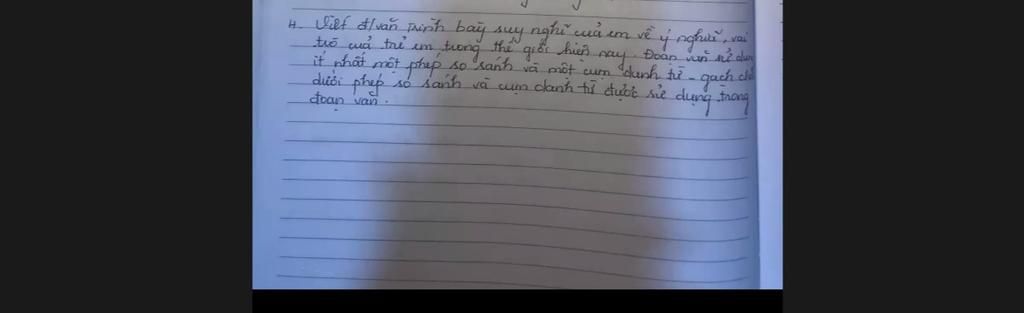 4. Viết đ/văn trình bày suy nghĩ của em về ý nghĩa, vai
trò của trẻ em trong thế giới hiện nay. Đoạn văn sử dụng
ít nhất một phép so sánh và một cụm danh từ - gạch chỉ
dưới phép so sánh và cụm danh từ được sử dụng trong
đoạn văn.